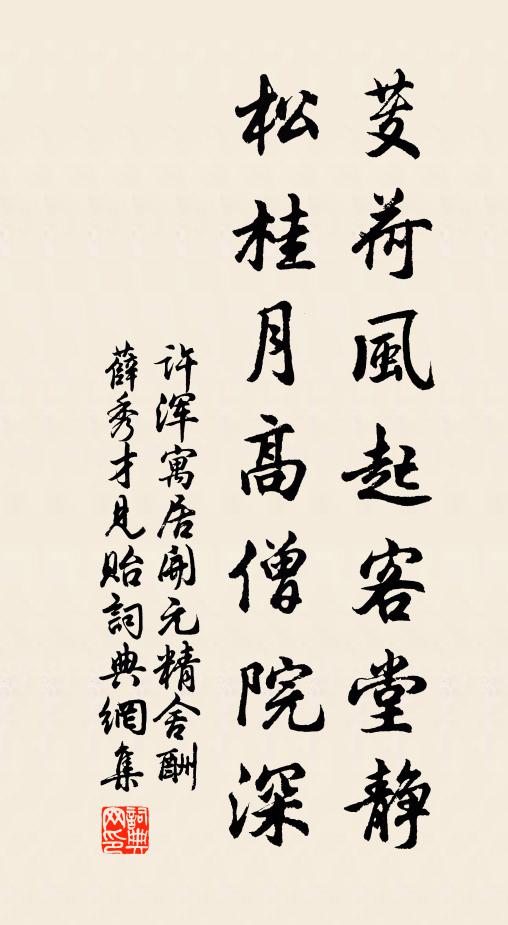 芰荷風起客堂静
松桂月高僧院深
许浑寓居開元精舍酬
薛秀才見貽詞典網集
詞典
网印